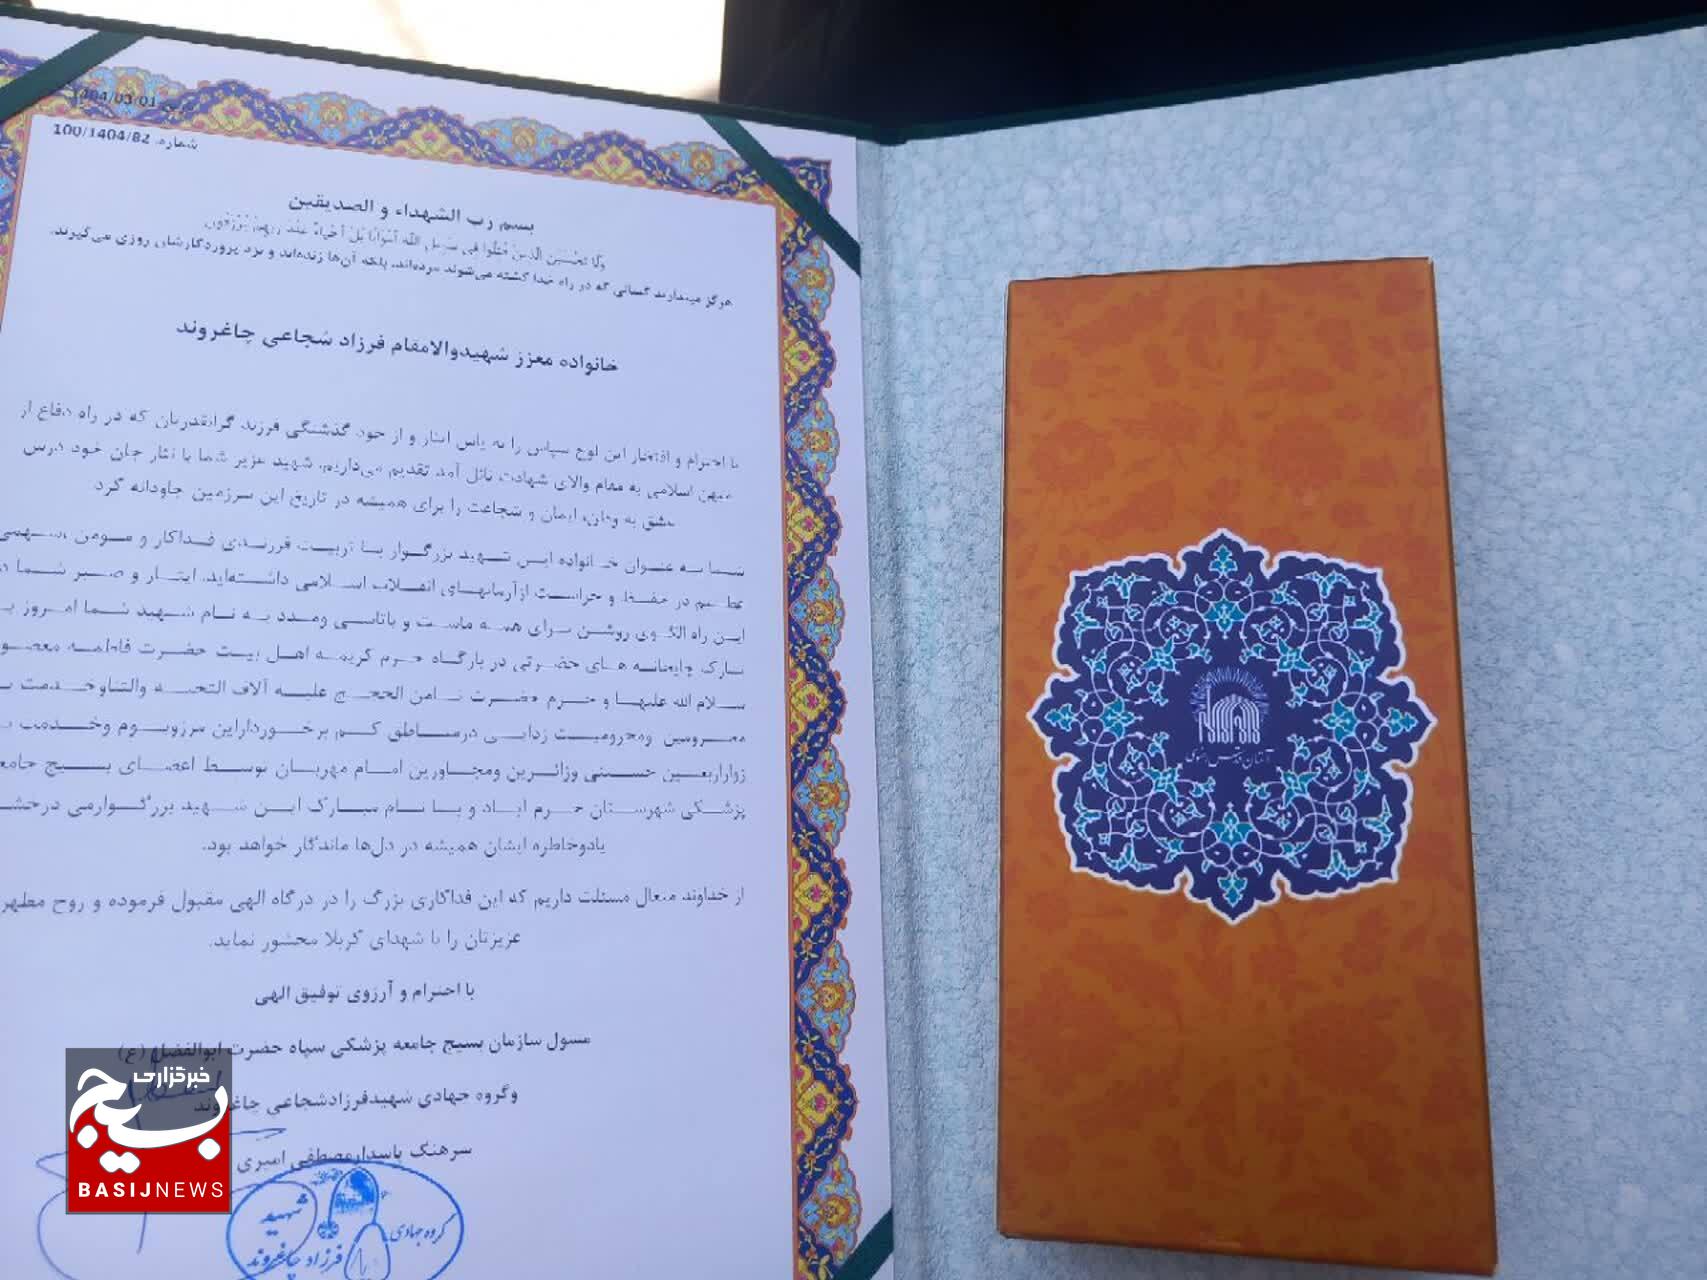 1404/03/01
شماره: 100/1404/82
بسم رب الشهداء و الصدیقین
وَلَا تَحْسَبَنَّ الَّذِينَ قُتِلُوا فِي سَبِيلِ اللَّهِ أَمْوَاتًا بَلْ أَحْيَاءٌ عِنْدَ رَبِّهِمْ يُرْزَقُونَ
هرگز مپندارید کسانی که در راه خدا کشته می‌شوند مرده‌اند، بلکه آن‌ها زنده‌اند و نزد پروردگارشان روزی می‌گیرند.
خانواده معزز شهیدوالامقام فرزاد شجاعی چاغروند
با احترام و افتخار این لوح سپاس را به پاس ایثار و از خود گذشتگی فرزند گرانقدرتان که در راه دفاع از
میهن اسلامی به مقام والای شهادت نائل آمد تقدیم می‌داریم. شهید عزیز شما با نثار جان خود درس
عشق به وطن، ایمان و شجاعت را برای همیشه در تاریخ این سرزمین جاودانه کرد.
شما به عنوان خانواده این شهید بزرگوار با تربیت فرزندی فداکار و مومن ،سهمی
عظیم در حفظ و حراست ازآرمانهای انقلاب اسلامی داشته‌اید. ایثار و صبر شما
این راه الگوی روشن برای همه ماست و باتاسی ومدد به نام شهید شما امروز
چایخانه های حضرتی در بارگاه حرم کریمه اهل بیت حضرت فاطمه
سلام الله علیها و حرم حضرت ثامن الحجج علیه آلاف التحیه والثناوخدمت
محرومین ومحرومیت زدایی درمناطق کم برخورداراین مرزوبوم وخدمت
زواراربعین حسینی وزائرین ومجاورین امام مهربان توسط اعضای بسیج
پزشکی شهرستان خرم اباد و با نام مبارک این شهید بزرگوارمی
یادوخاطره ایشان همیشه در دل‌ها ماندگار خواهد بود.
از خداوند متعال مسئلت داریم که این فداکاری بزرگ را در درگاه الهی مقبول فرموده و روح مطهر
عزیزتان را با شهدای کربلا محشور نماید.
با احترام و آرزوی توفیق الهی
مسول سازمان بسیج جامعه پزشکی سپاه حضرت ابوالفضل (ع)
وگروه جهادی شهیدفرزادشجاعی چاغروند
سرهنگ پاسدارمصطفی امیری
گروه جهادی
شهید
فرزاد چاغروند
آستان قدس رضوی
خبرگزاری
بسیج
BASIJNEWS